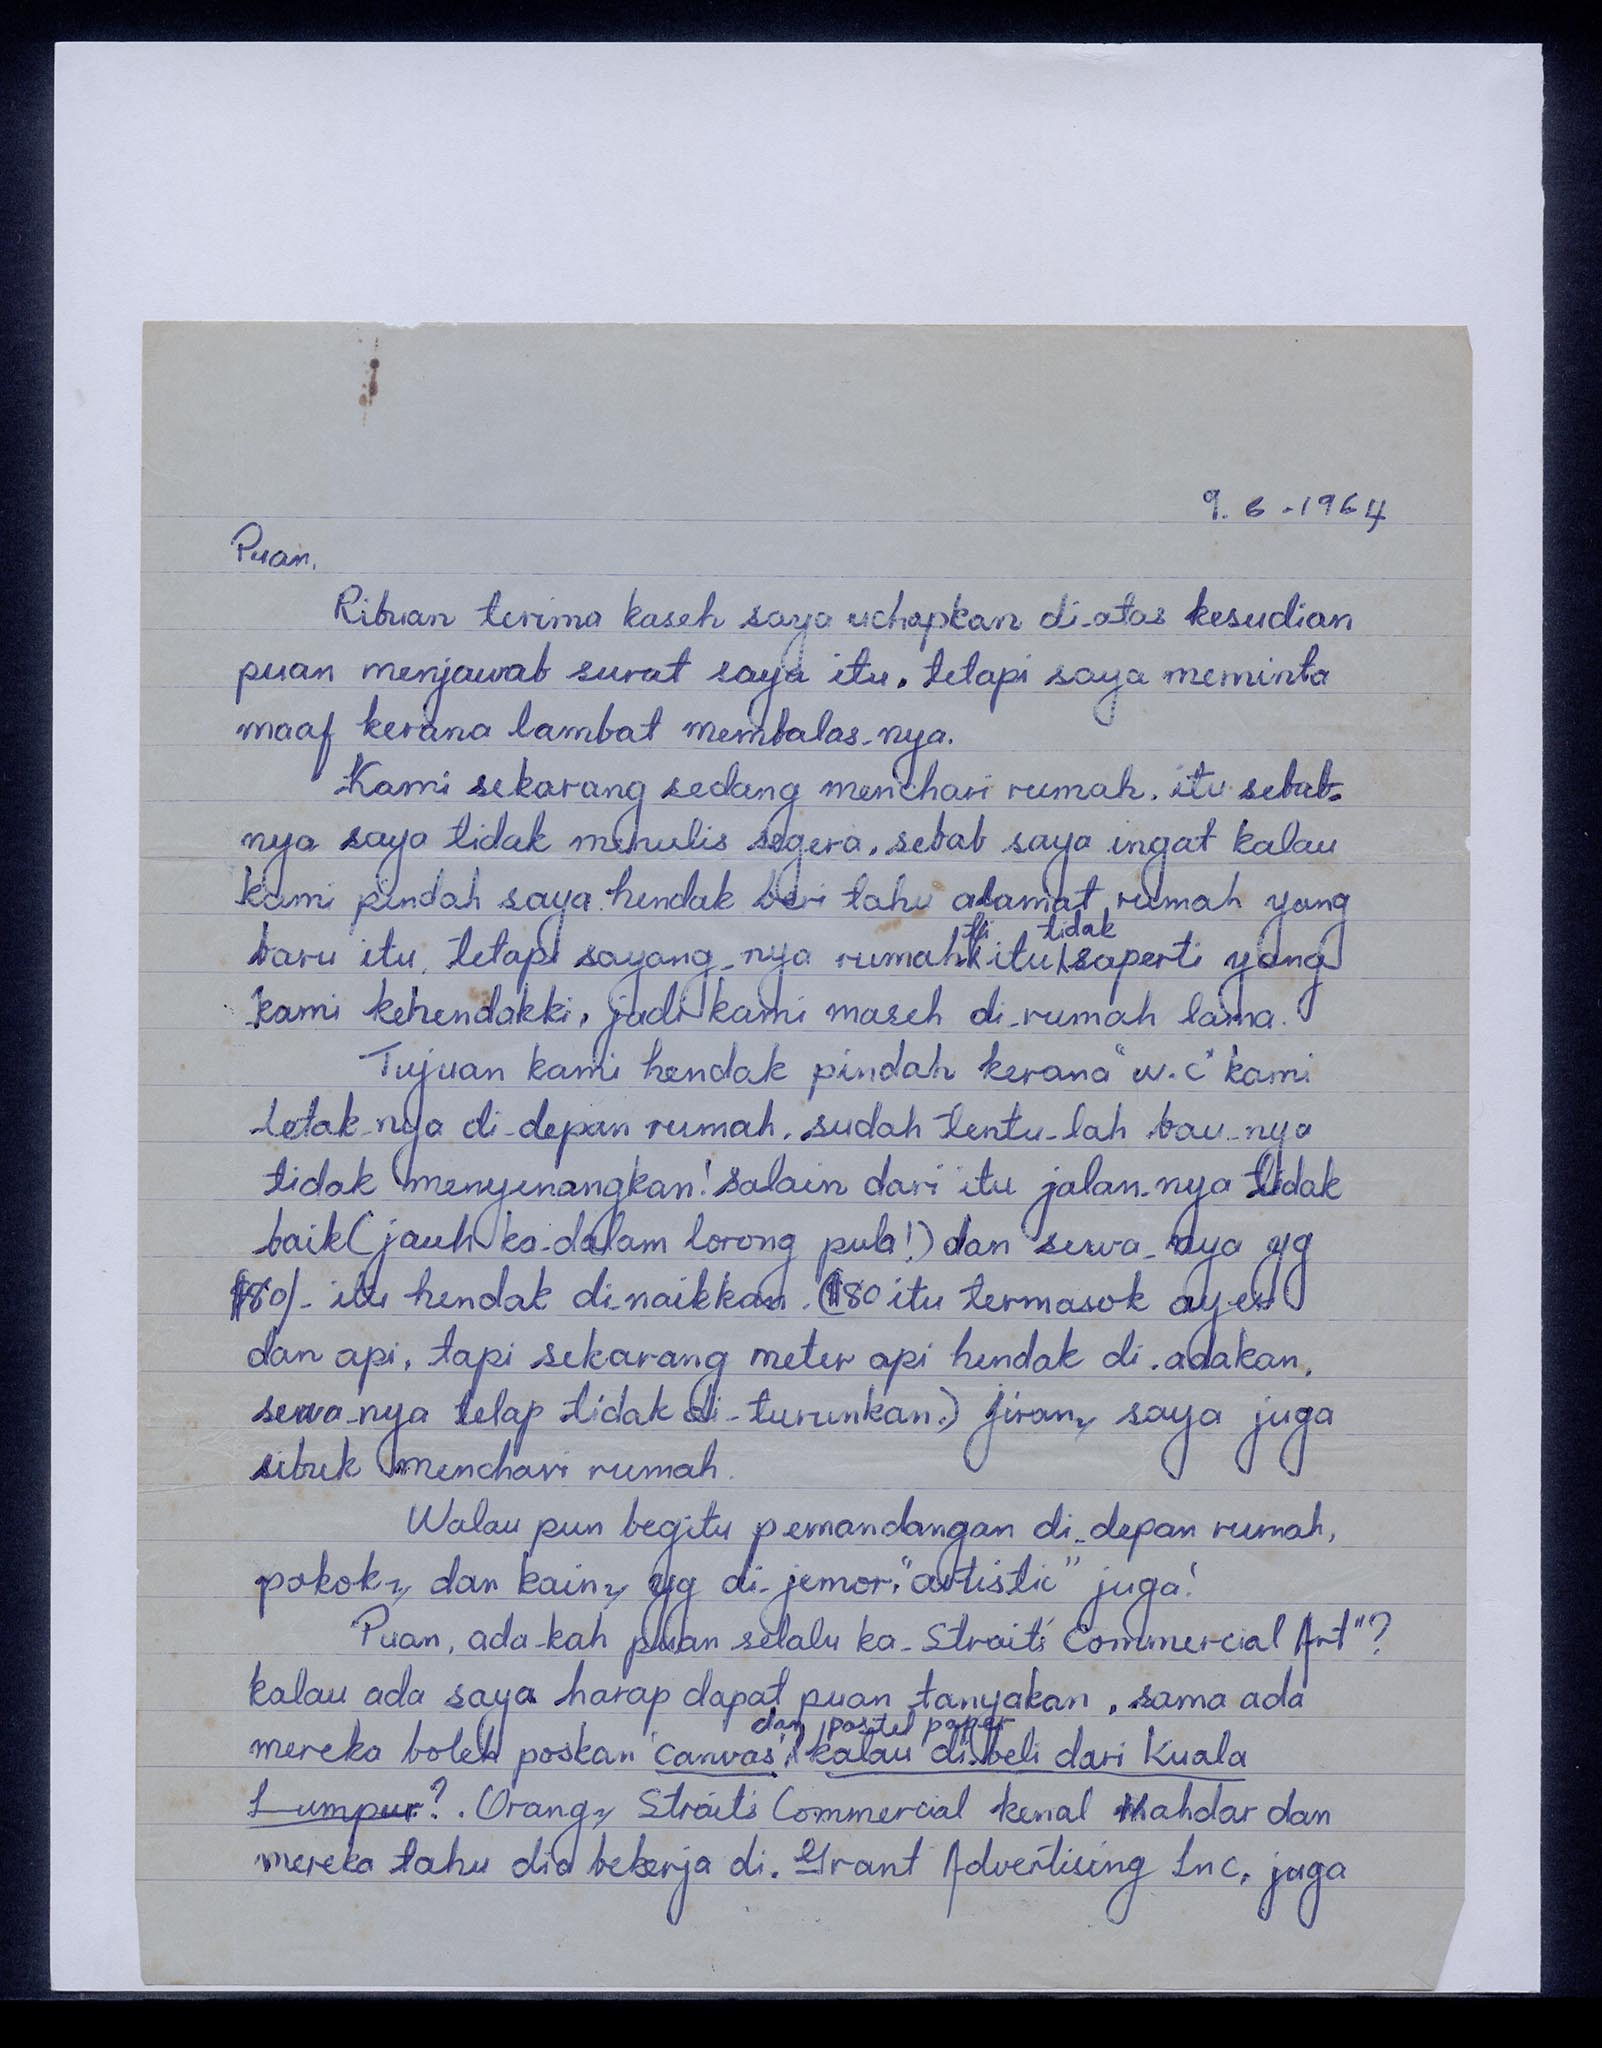 9.6-1964
Puan,
Ribuan terima kaseh saya uchapkan di-atas kesudian
puan menjawab surat saya itu. tetapi saya meminta
maaf kerana lambat membalas-nya.
Kami sekarang sedang menchari rumah. itu sebab-
nya saya tidak menulis segera, sebab saya ingat kalau
kami pindah saya hendak beri tahu alamat rumah yang
baru itu, tetapi sayang-nya rumah2 itu tidak saperti yang
kami kehendakki, jadi kami maseh di-rumah lama.
Tujuan kami hendak pindah kerana "w.c" kami
letak-nya di-depan rumah. sudah tentu-lah bau-nya
tidak menyenangkan! salain dari itu jalan-nya tidak
baik (jauh ka-dalam lorong pula!) dan sewa-nya yg
$80/- itu hendak di-naikkan. ($80 itu termasok ayer
dan api, tapi sekarang meter api hendak di-adakan,
sewa-nya tetap tidak di-turunkan.) Jiran2 saya juga
sibuk menchari rumah.
Walau pun begitu pemandangan di-depan rumah,
pokok2 dan kain2 yg di-jemor, "artistic" juga!
Puan, ada-kah puan selalu ka-Straits Commercial Art"?
kalau ada saya harap dapat puan tanyakan, sama ada
mereka boleh poskan 'canvas' dan pastel paper kalau di-beli dari Kuala
Lumpur?. Orang2 Straits Commercial kenal Mahdar dan
mereka tahu dia bekerja di-Grant Advertising Inc. juga